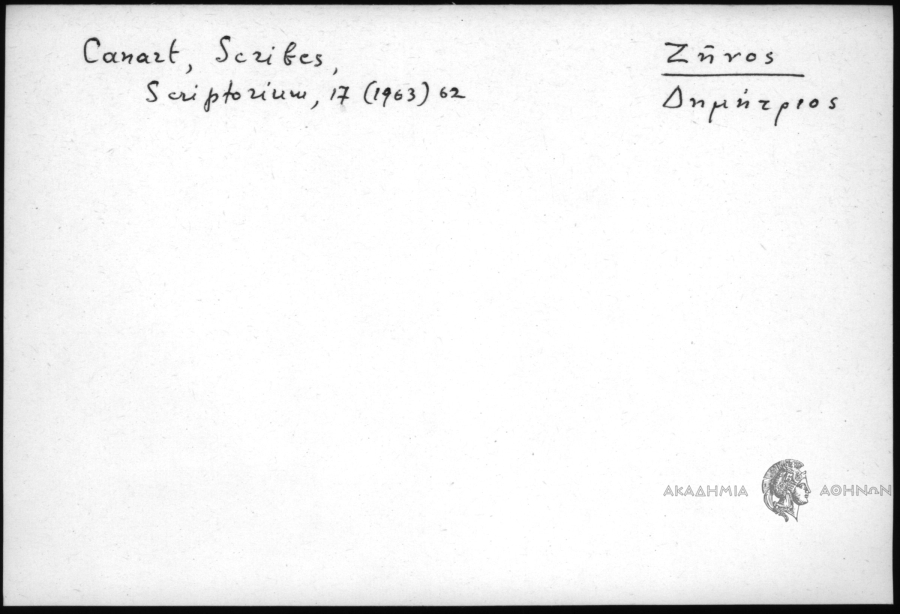 Canart, Scribes,
Scriptorium, 17 (1963) 62
Ζῆνος
Δημήτριος
ΑΚΑΔΗΜΙΑ ΑΘΗΝΩΝ